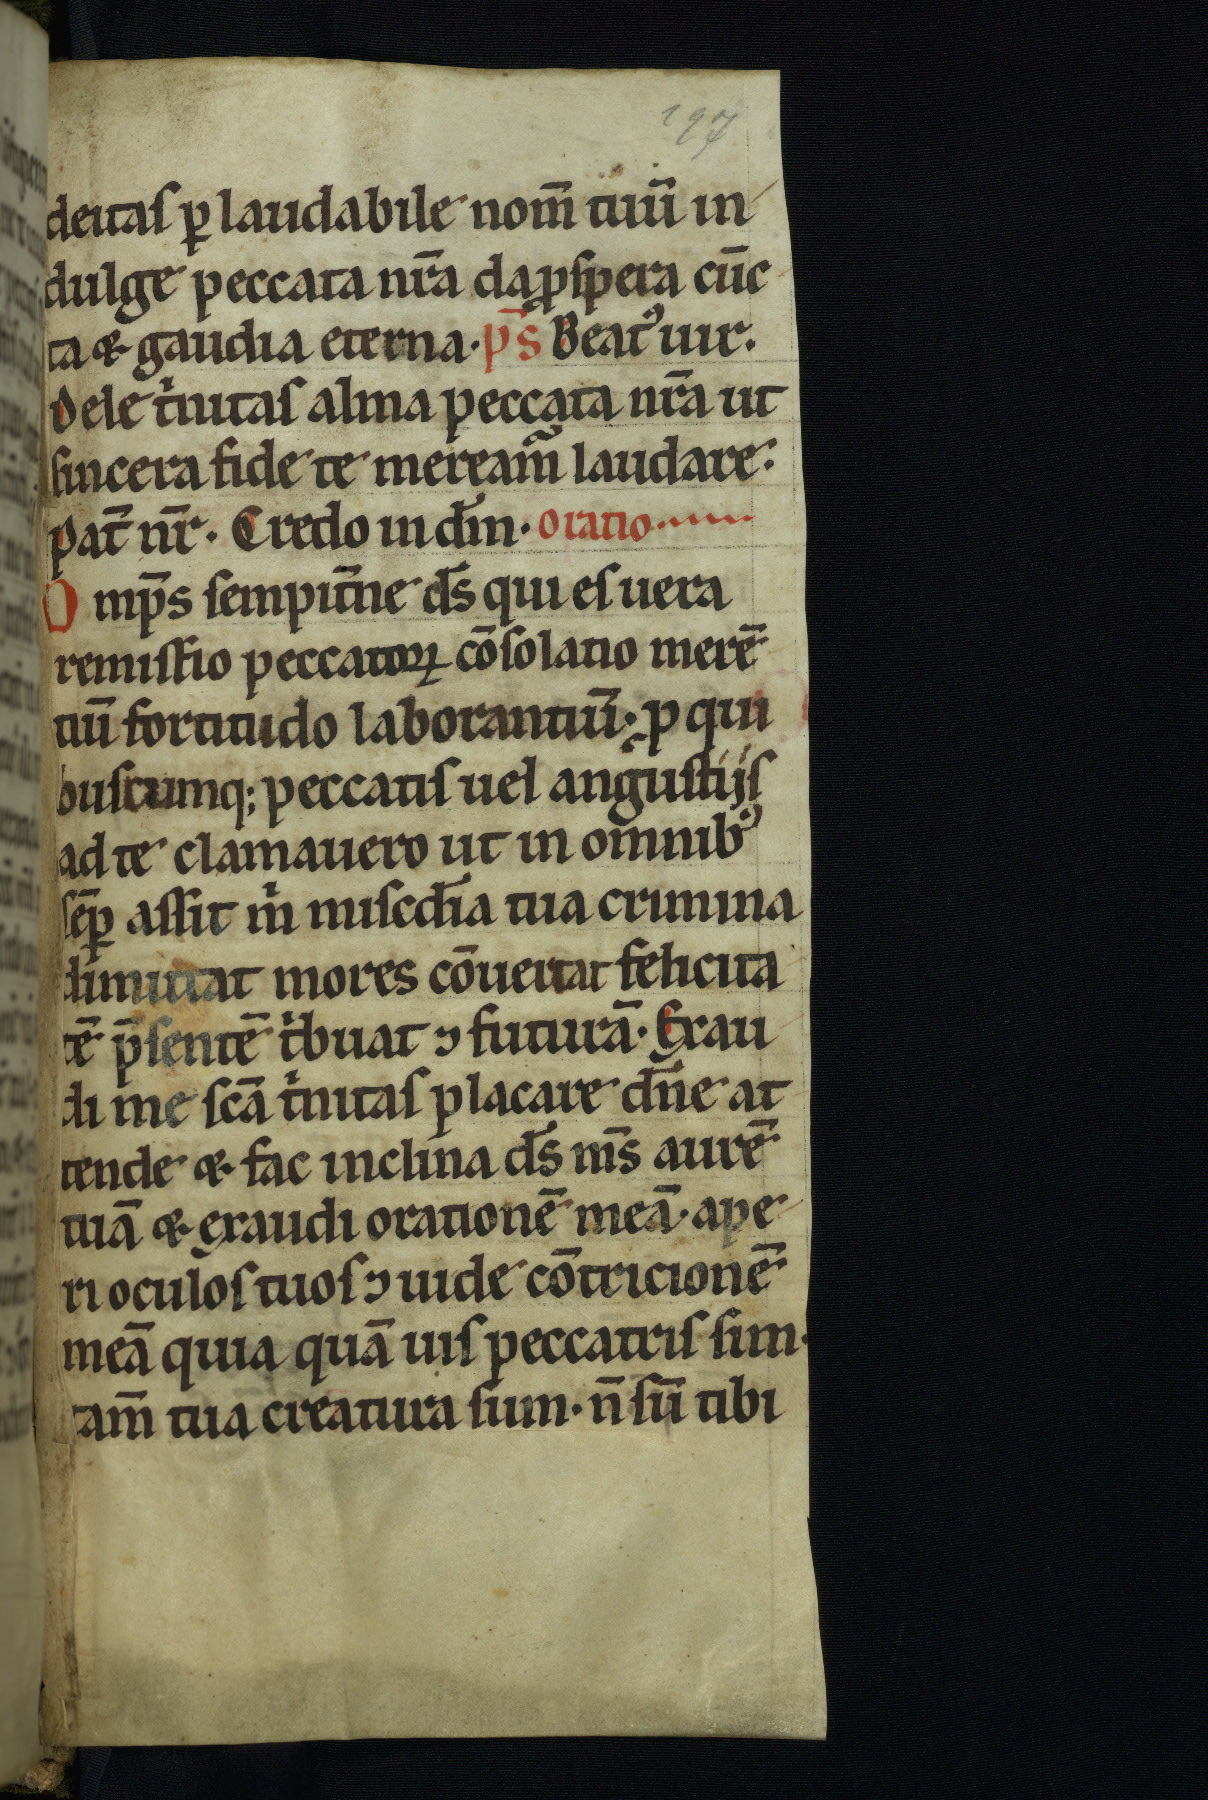 197
deitas ꝑ laudabile nom̅ tuu̅ in
dulge peccata nr̅a da ꝓspera cu̅c
ta & gaudia eterna · ps̅ Beatꝰ uir.
Dele tͥnitas alma peccata nr̅a ut
sincera fide te meream̅ laudare.
Pat̅ nr̅ · Credo in dm̅ · oratio
O mp̅s sempit̅ne ds̅ qui es uera
remissio peccatoꝝ co̅solatio mere̅
tiu̅ fortitudo laborantiu̅ · p qui
buscumq; peccatis uel angustijs
ad te clamauero ut in omnibꝰ
se̅ꝑ assit mͥ misc̅dia tua crimina
dimittat mores co̅uertat felicita
te̅ p̅sente̅ tͥbuat ⁊ futura̅ · Exau
di me sc̅a tͥnitas placare dn̅e at
tende & fac inclina ds̅ ms̅ aure̅
tua̅ & exaudi oratione̅ mea̅ · ape
ri oculos tuos ⁊ uide co̅tricione̅
mea̅ quia qua̅ uis peccatris sim ·
tam̅ tua creatura sum · n̅ su̅ tibi